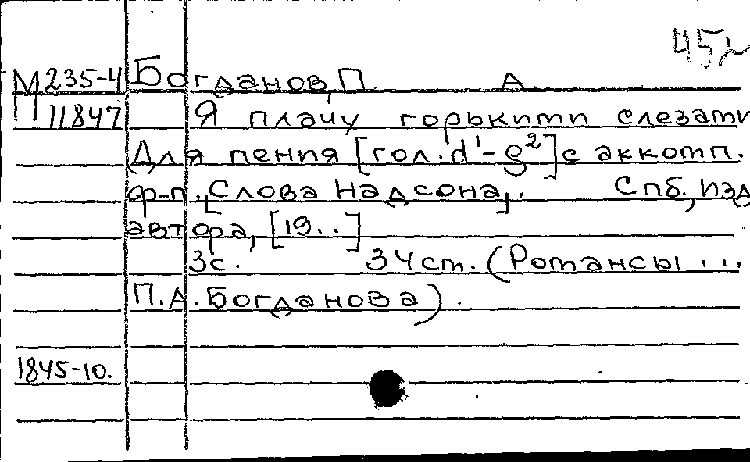 45
М 235-4 Богданов, П. А.
П 11847 Я плачу горькими слезами
Для пения [гол. d¹-g²] с акком.
ф-п., [Слова Надсона]. Спб, изд.
автора, [19..]
3с. 34см. (Романсы ...
П.А. Богданова).
1845-10.